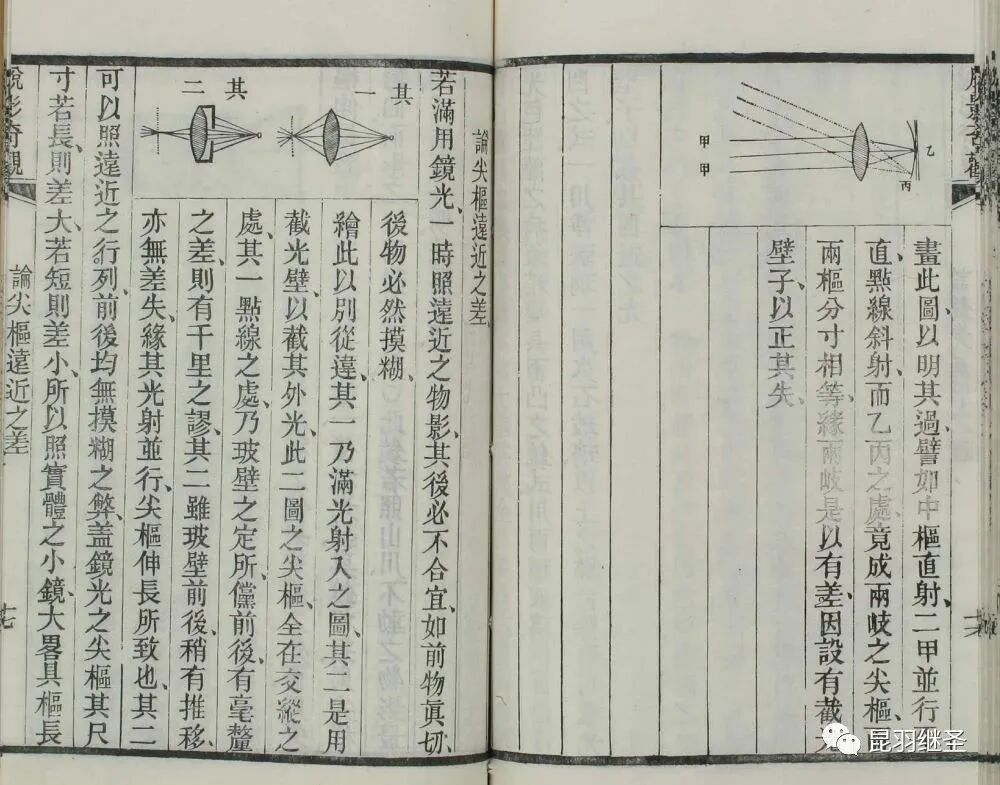 甲 甲 乙 丙
畫此圖、以明其過、譬如中樞直射、二甲並行
直、點線斜射、而乙丙之處、竟成兩岐之尖樞、
兩樞分寸相等、緣兩岐是以有差、因設有截光
壁子、以正其失、
論尖樞遠近之差
若滿用鏡光、一時照遠近之物影、其後必不合宜、如前物眞切、
後物必然摸糊、
其一
其二
繪此以別從違、其一乃滿光射入之圖、其二是用
截光壁以截其外光、此二圖之尖樞、全在交縱之
處、其一點線之處、乃玻壁之定所、儻前後、有毫釐
之差、則有千里之謬、其二雖玻壁前後、稍有推移、
亦無差失、緣其光射並行、尖樞伸長所致也、其二
可以照遠近之行列、前後均無摸糊之弊、蓋鏡光之尖樞、其尺
寸若長、則差大、若短則差小、所以照實體之小鏡、大畧具樞長
脫影奇觀
論尖樞遠近之差
昆羽继圣